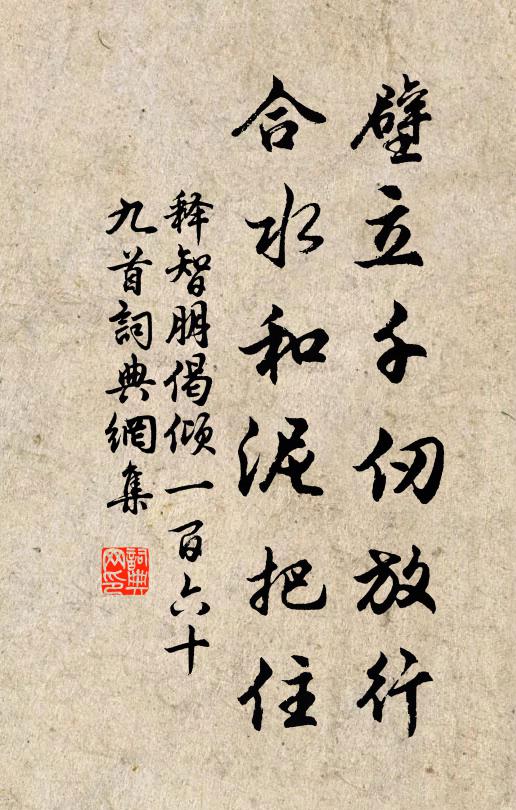 壁立千仞放行
合水和泥把住
释智朋偈倾一百六十
九首詞典網集
詞典
网印